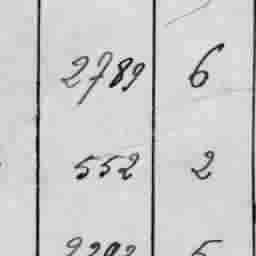 2789 6
552 2